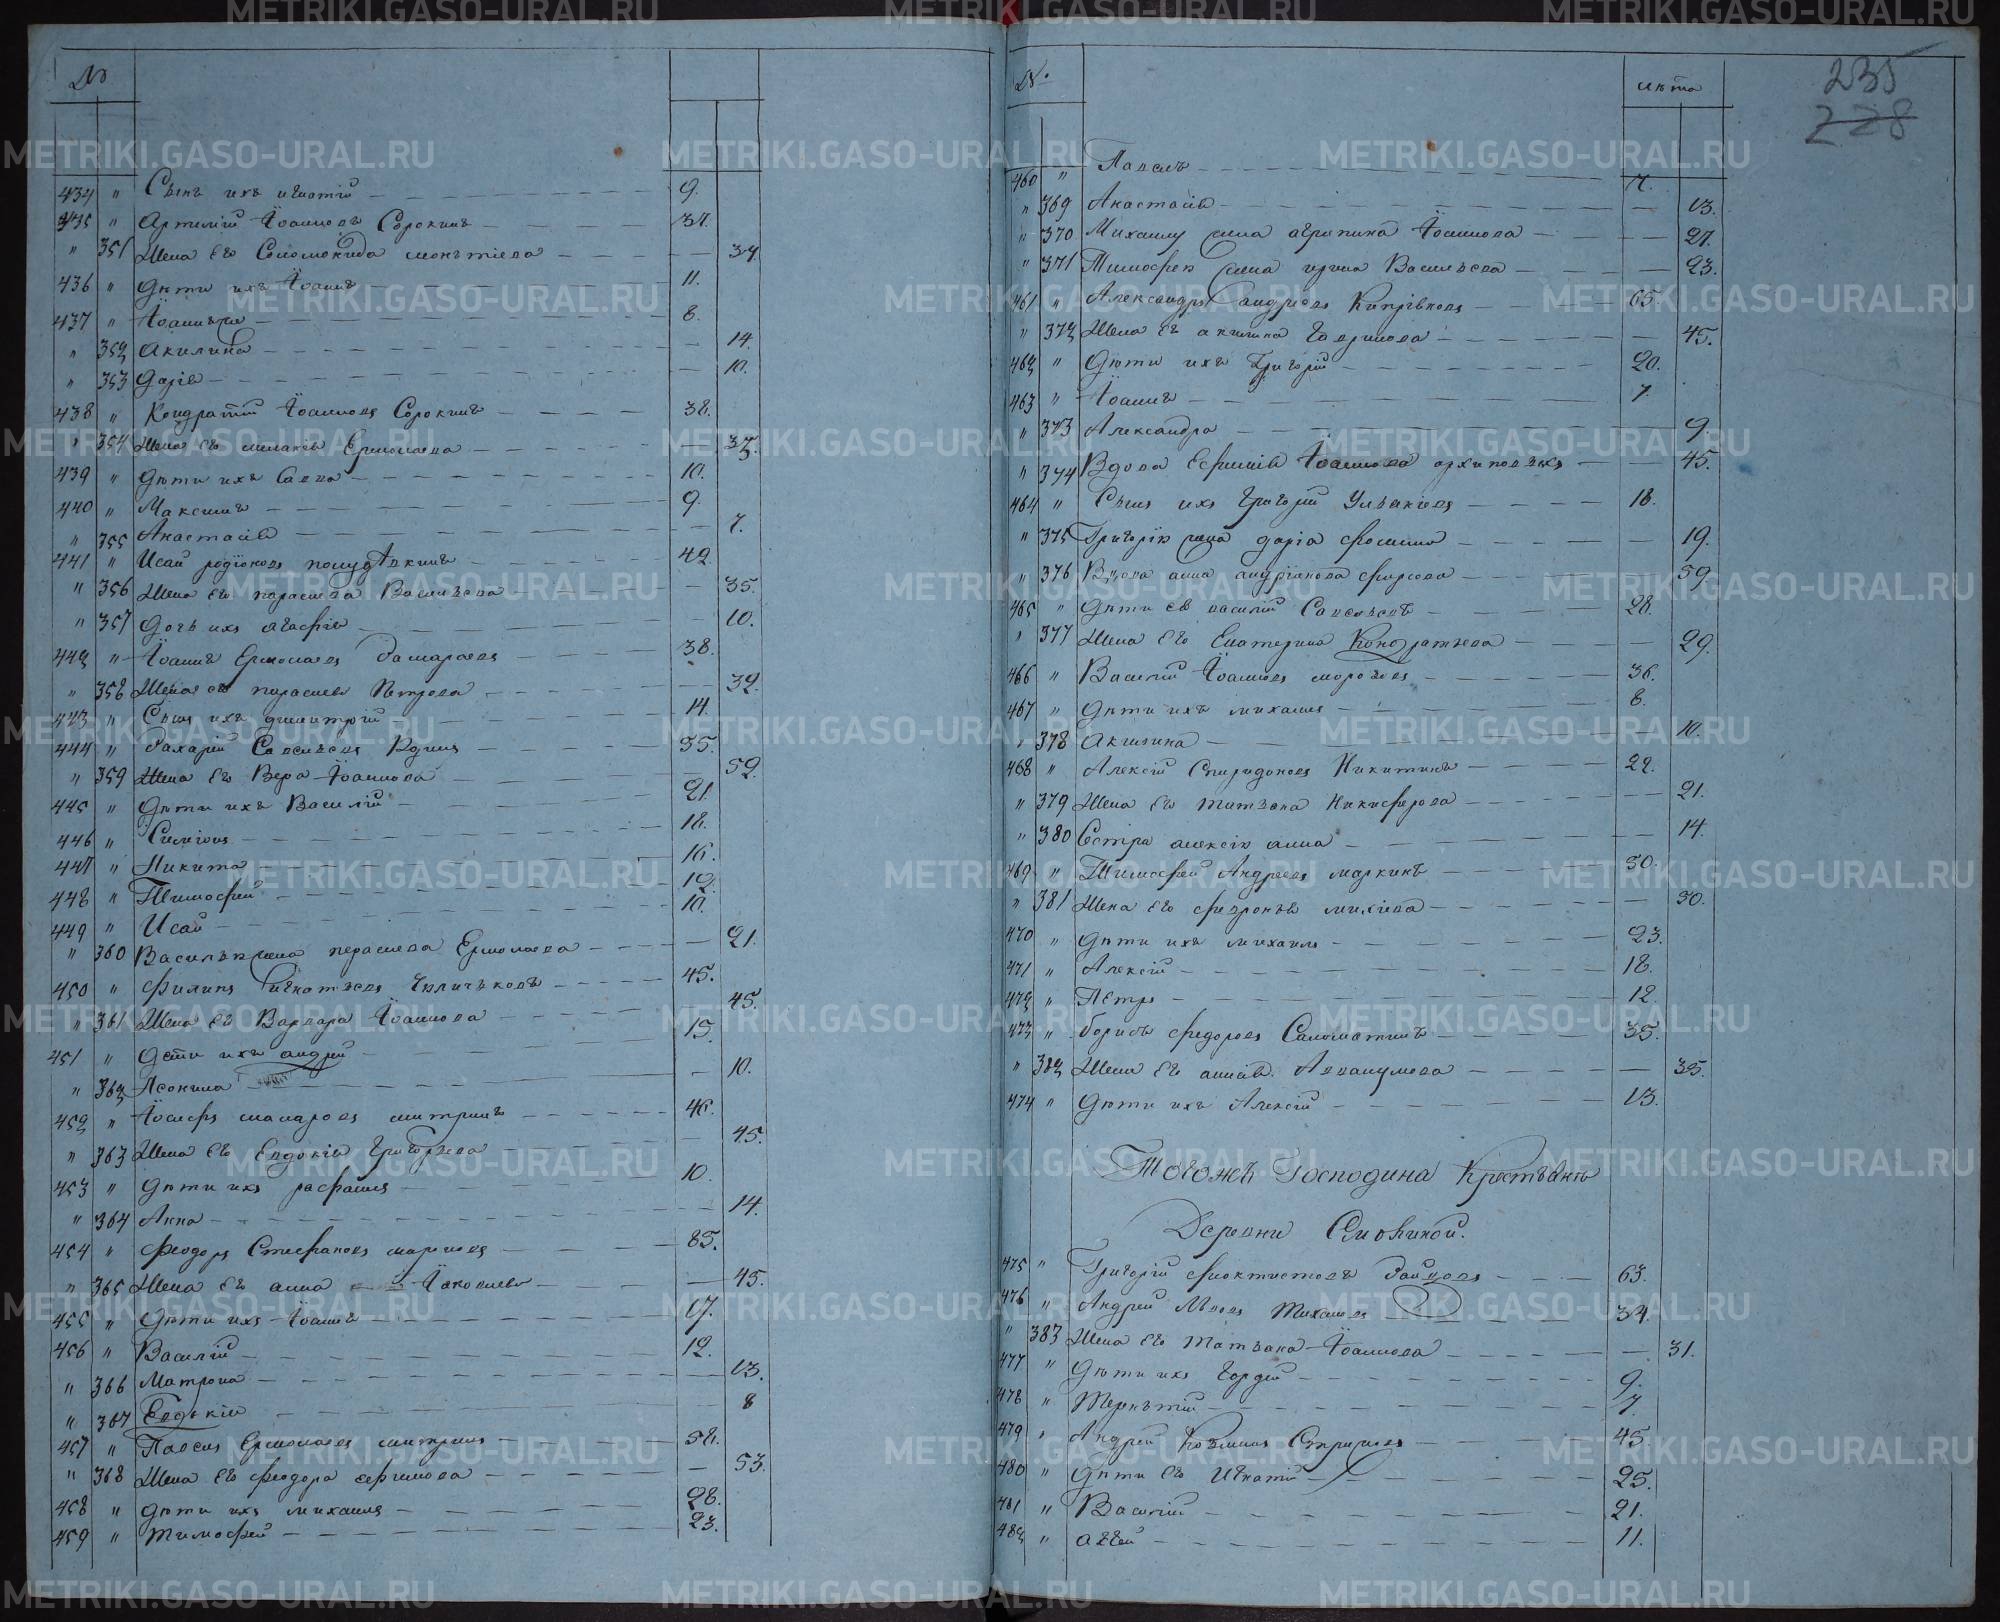 №
434 " Сынъ ихъ игнатій 9.
435 " Артемій Іоанновъ Сорокинъ 37.
" 351 Жена Его Соломонида 37.
436 " Дѣти ихъ Іоаннъ 11.
437 " Іоанникій 8.
" 352 Акилина 14.
" 353 Дарія 10.
438 " Кондратій Іоанновъ Сорокинъ 38.
" 354 Жена Его Ермолаева 37.
439 " Дѣти ихъ Савва 10.
440 " Максимъ 9.
" 355 Анастасія 7.
441 " Исай родіоновъ 42.
" 356 Жена Его параскева Васильева 35.
" 357 Дочь ихъ агафія 10.
442 " Іоаннъ Ермолаевъ 38.
" 358 Жена его параскева Петрова 39.
443 " Сынъ ихъ димитрій 14.
444 " Захарій Савельевъ 55.
" 359 Жена Его Вера Іоаннова 52.
445 " Дѣти ихъ Василій 21.
446 " Симіонъ 18.
447 " Никита 16.
448 " Тимофей 12.
449 " Исай 10.
" 360 Василья жена параскева Ермолаева 21.
450 " Филипъ игнатьевъ 45.
" 361 Жена Его Варвара Іоаннова 45.
451 " Дѣти ихъ андрей 15.
" 362 10.
452 " Іосифъ митринъ 46.
" 363 Жена Его Евдокія Григорьева 45.
453 " Дѣти ихъ 10.
" 364 Анна 14.
454 " Феодоръ Стефановъ 85.
" 365 Жена Его анна Іаковлева 45.
455 " Дѣти ихъ Іоаннъ 17.
456 " Василій 12.
" 366 Матрона 13.
" 367 Евдокія 8
457 " Павелъ Ермолаевъ митринъ 58.
" 368 Жена Его феодора ефимова 53.
458 " Дѣти ихъ михаилъ 28.
459 " Тимофей 23.
№. лѣта 235
228
460 " Павелъ 7.
" 369 Анастасія 13.
" 370 Михаилу жена агрипина Іоаннова 27.
" 371 Тимофея жена ирина Васильева 23.
461 " Александръ андреевъ 65.
" 372 Жена Его акилина Гаврилова 45.
462 " Дѣти ихъ Григорій 20.
463 " Іоаннъ 7
" 373 Александра 9.
" 374 Вдова Ефимія Іоаннова 45.
464 " Сынъ ихъ Григорій 18.
" 375 Григорія жена дарія фомина 19.
" 376 Вдова анна андріанова 59.
465 " Дѣти ея василій Савельевъ 28.
" 377 Жена Его Екатерина Кондратьева 29.
466 " Василій Іоанновъ морозовъ 36.
467 " Дѣти ихъ михаилъ 8.
" 378 Акилина 10.
468 " Алексій Спиридоновъ Никитинъ 22.
" 379 Жена Его татьяна Никифорова 21.
" 380 Сестра алексія анна 14.
469 " Тимофей Андреевъ маркинъ 50.
" 381 Жена Его февронья 50.
470 " Дѣти ихъ михаилъ 23.
471 " Алексій 18.
472 " Петръ 12.
473 " борисъ федоровъ Саломатинъ 35.
" 382 Жена Его анисія Аввакумова 35.
474 " Дѣти ихъ Алексій 13.
Тогожъ Господина Крестьянъ
Деревни
475 " Григорій феоктистовъ Зайцовъ 63.
476 " Андрей 34.
" 383 Жена Его Татьяна Іоаннова 31.
477 " Дѣти ихъ Гордей 9.
478 " Терентій 7.
479 " Андрей Козминъ 45.
480 " Дѣти Его Игнатій 25.
481 " Василій 21.
482 " 11.